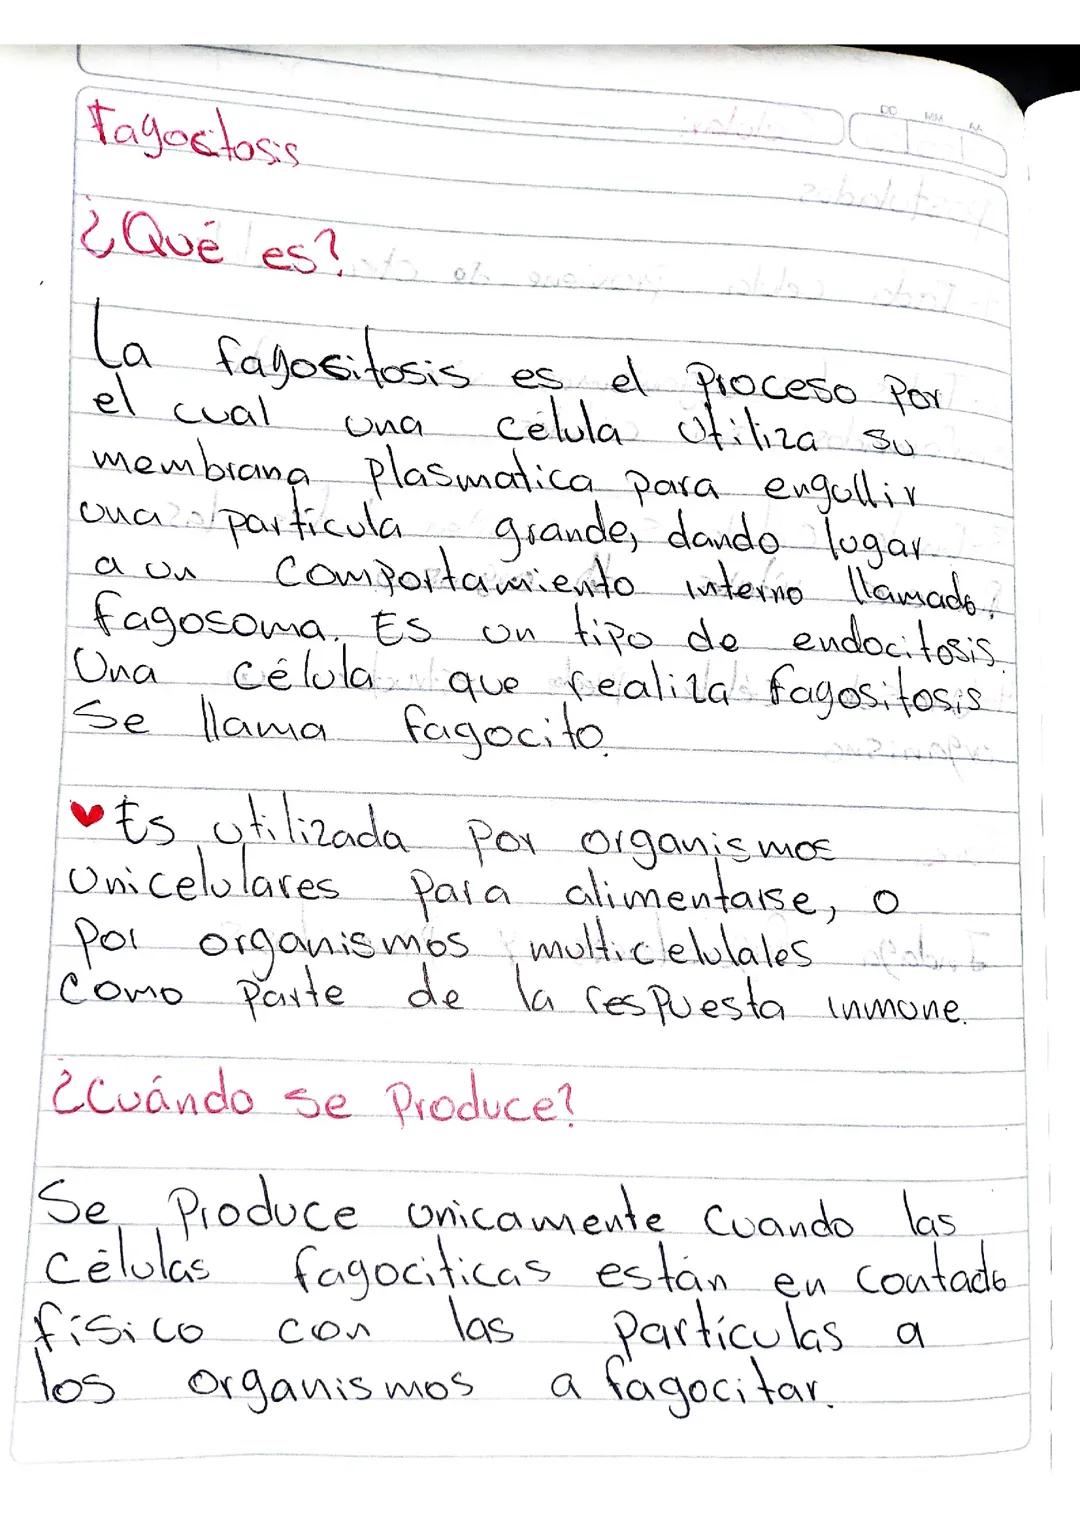 Fagocitosis
¿Qué es?
La fagositosis es el proceso por
el cual una célula utiliza su
membrana plasmatica para engullir
una particula grande, dando lugar
a un comportamiento interno llamado
fagosoma. Es un tipo de endocitosis.
Una célula que realiza fagositosis
se llama fagocito.
♥ Es utilizada por organismos
unicelulares para alimentarse, o
por organismos multicelulales
como parte de la respuesta inmune.
¿Cuándo se produce?
Se produce unicamente cuando las
células fagociticas están en contacto
físico con las partículas a
los organismos a fagocitar.
DD MM AA